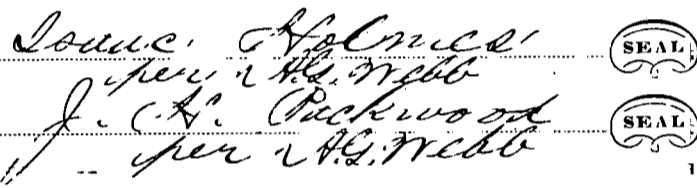 Isaac Holmes SEAL
per A.G. Webb
J. H. Packwood SEAL
per A.G. Webb